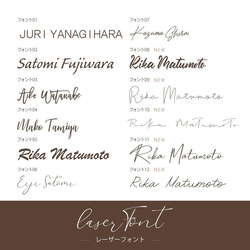 フォント01
JURI YANAGIHARA
フォント02
Satomi Fujiwara
フォント03
Aiko Watanabe
フォント04
Mako Tamiya
フォント05
Rika Matumoto
フォント06
Eiji Satomi
フォント07
Kazuma Ghura
フォント08 NEW
Rika Matumoto
フォント09 NEW
Rika Matumoto
フォント10 NEW
Rika Matumoto
フォント11 NEW
Rika Matumoto
フォント12 NEW
Rika Matumoto
laser font
レーザーフォント